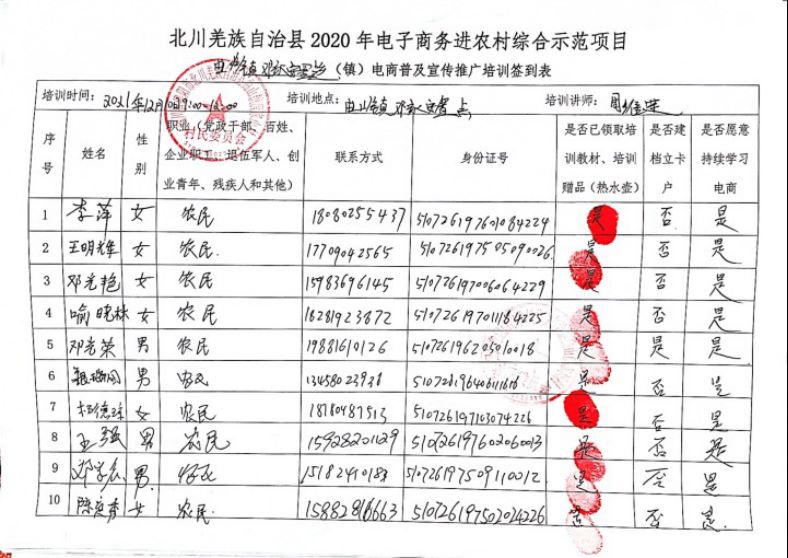 北川羌族自治县2020年电子商务进农村综合示范项目
（镇）电商普及宣传推广培训签到表
培训时间：2021年12月10日9:00-12:00 培训地点： 培训讲师：
序号 姓名 性别 职业（党政干部、百姓、企业职工、退伍军人、创业青年、残疾人和其他） 联系方式 身份证号 是否已领取培训教材、培训赠品（热水壶） 是否建档立卡户 是否愿意持续学习电商
1 李萍 女 农民 18080255437 510726197601084224 是 否 是
2 王明辉 女 农民. 17709042565 510726197505090026 是 否 是
3 邓光艳 女 农民 15983696145 510726197006064229 是 否 是
4 喻晓林 女 农民 18281923872 510726197011184225 是 否 是
5 邓光荣 男 农民 19881610126 510726196205010018 是 是 是
6 男 农民 13458023938 否 是
7 女 农民 18180487513 510726197103074226 是 否 是
8 王强 男 农民 15928201129 510726197602060013 是 否 是
9 男. 农民 15182410188 510726197509110012 是 否 是
10 女 农民. 510726197502024226 否 是.
村民委员会